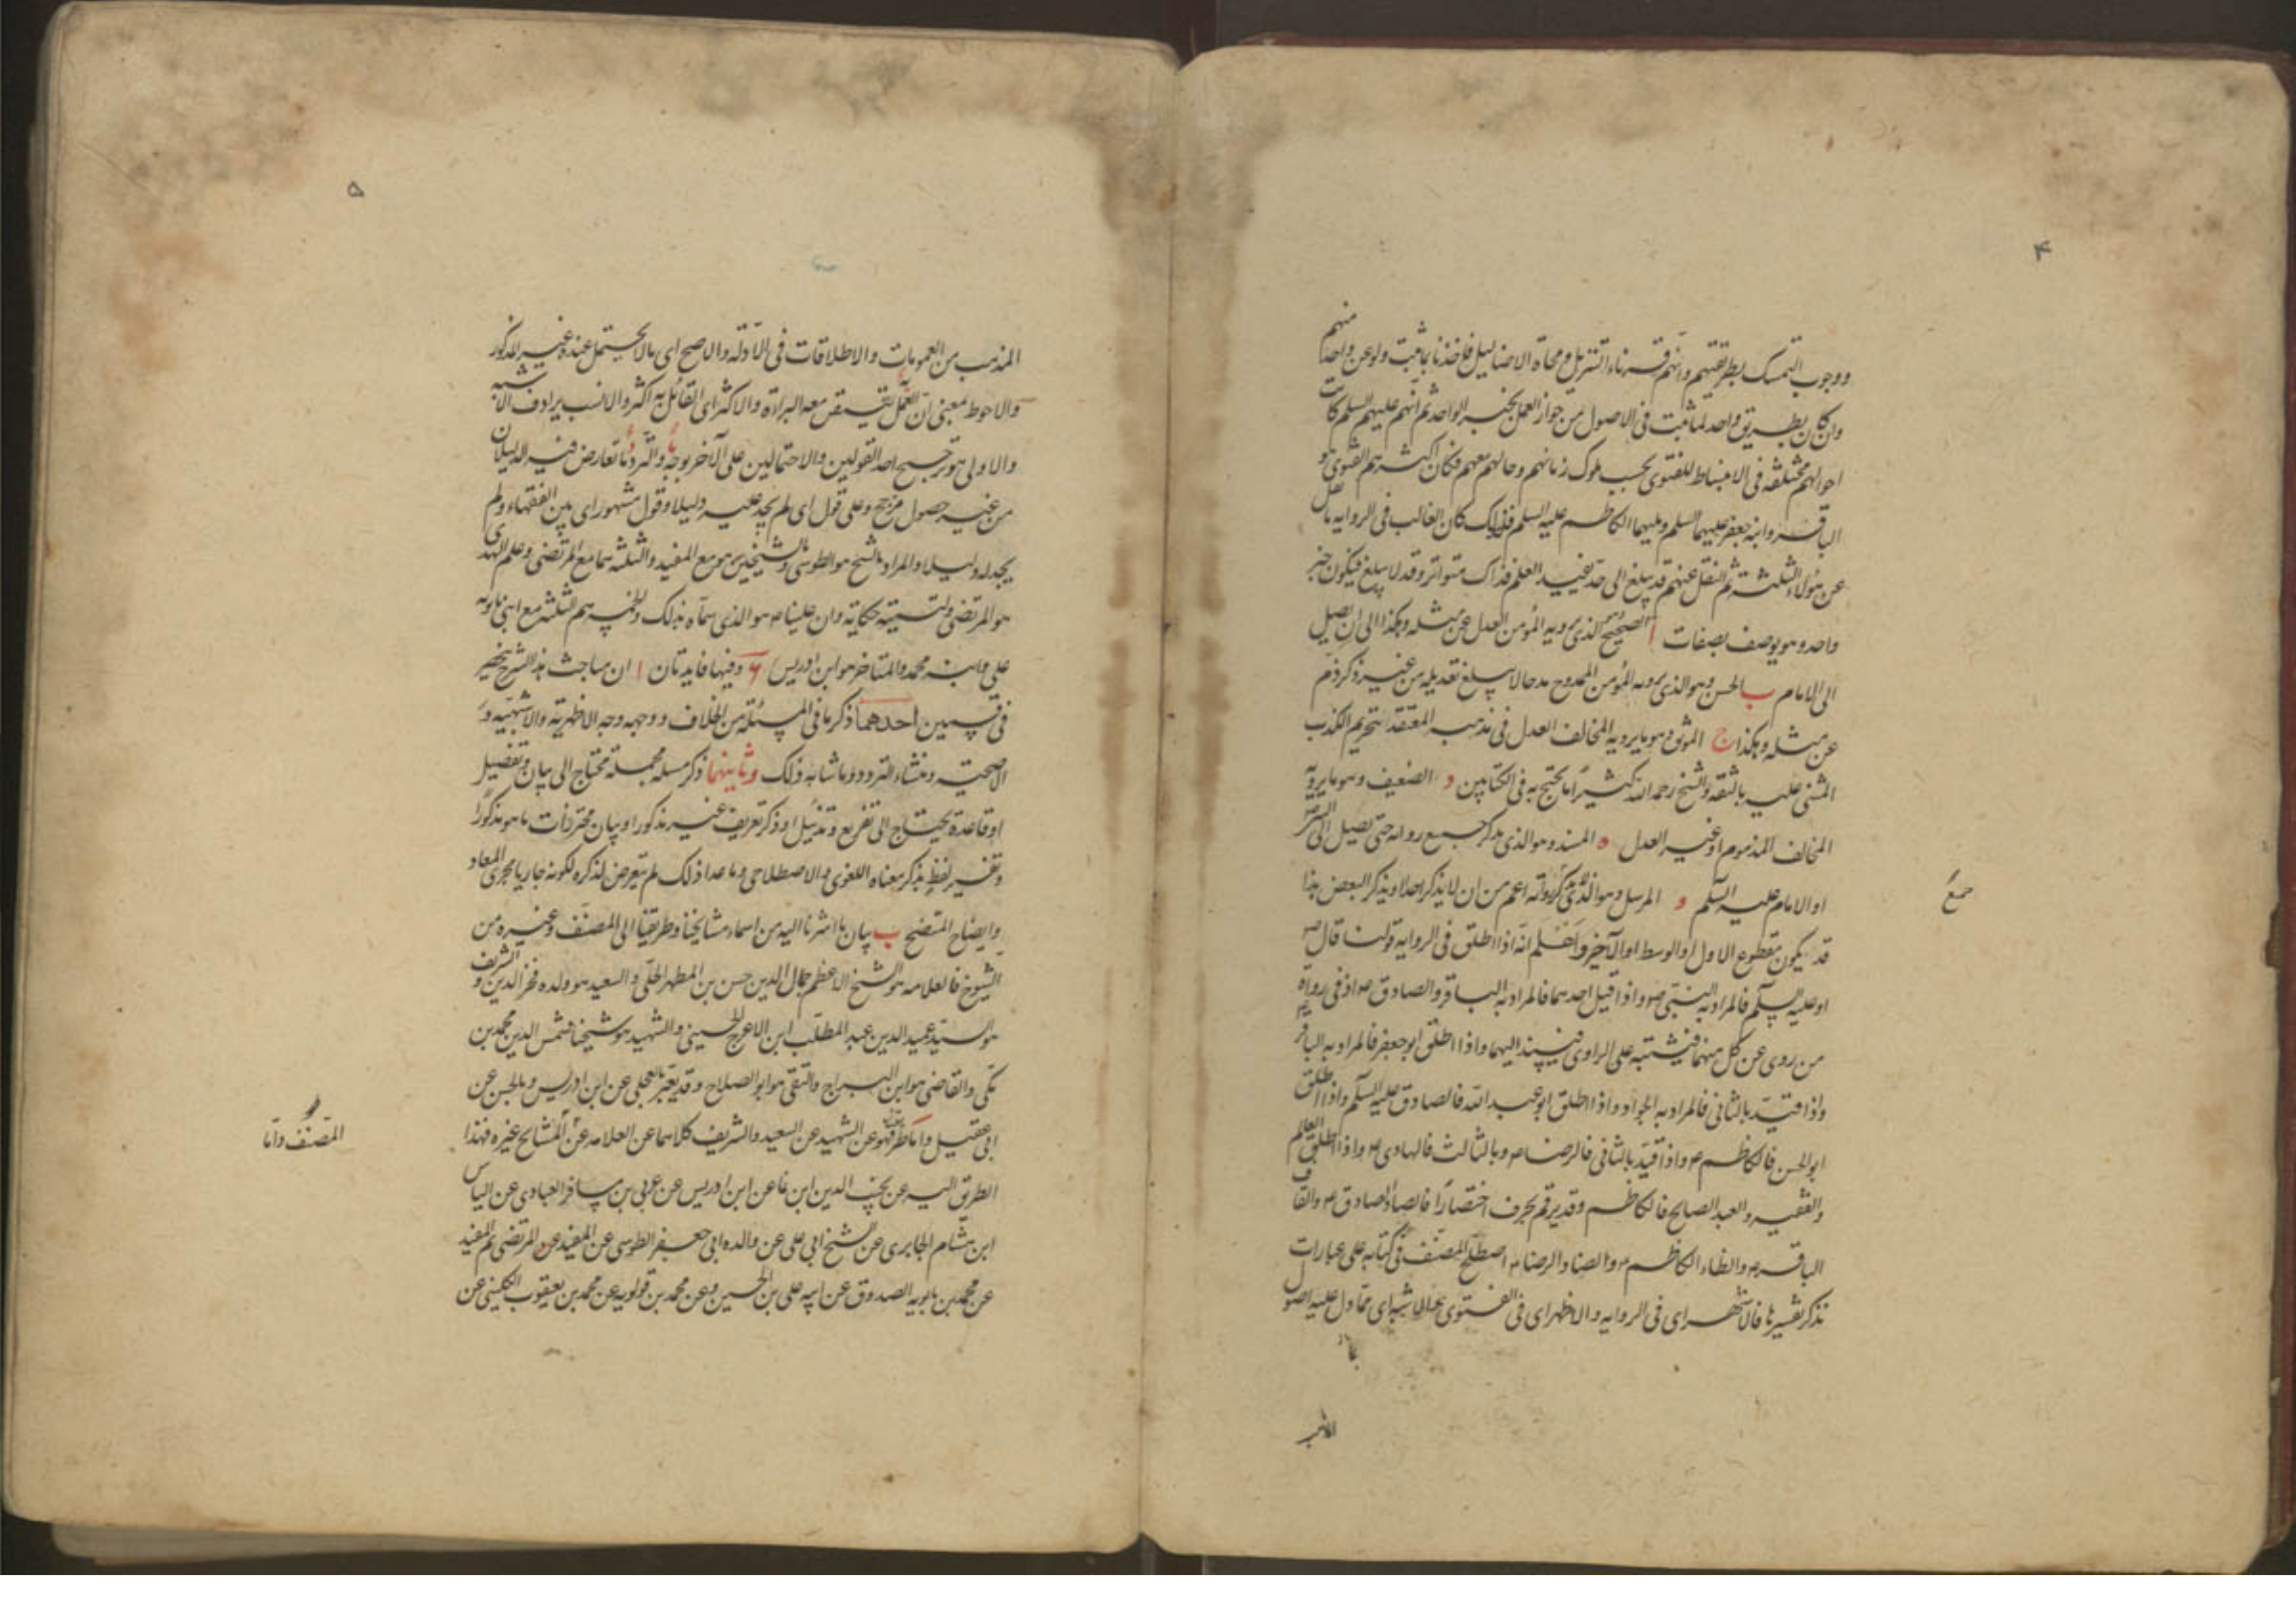 ۴
ووجوب التمسك بطريقتهم وانهم قرناء التنزيل ومحاة الاضاليل فلناخذنا بما ثبت ولو عن واحد منهم
وان كان بطريق واحد لما ثبت فى الاصول من جواز العمل بخبر الواحد ثم انهم عليهم السلم كانت
احوالهم مختلفه فى الانبساط للفتوى بحسب ملوك زمانهم وحالهم معهم فكان اكثرهم الفتوى هو
الباقر وابنه جعفر عليهما السلم ويليهما الكاظم عليه السلم فلذلك كان الغالب فى الروايه ما نقل
عن هؤلاء الثلثه ثم النقل عنهم قد يبلغ الى حد يفيد العلم فذاك متواتر وقد لا يبلغ فيكون خبر
واحد وهو يوصف بصفات ا الصحيح وهو الذى يرويه المؤمن العدل عن مثله وهكذا الى ان يصل
الى الامام ب الحسن وهو الذى يرويه المؤمن الممدوح مدحا لا يبلغ تعديله من غير ذكر ذم
عن مثله وهكذا ج الموثق وهو ما يرويه المخالف العدل فى مذهب المعتقد بتحريم الكذب
المثنى عليه بالثقه والشيخ رحمه الله كثيرا ما يحتج به فى الكتابين د الضعيف وهو ما يرويه
المخالف المذموم او غير العدل ه المسند وهو الذى يذكر جميع رواته حتى يصل الى
او الامام عليه السلم و المرسل وهو الذى لا يذكر رواته اعم من ان لا يذكر احدا ويذكر البعض هذا
جمع
قد يكون مقطوع الاول او الوسط او الآخر واعلم انه اذا اطلق فى الروايه قولنا قال ص
او عليه السلم فالمراد به النبى ص واذا قيل احدهما فالمراد به الباقر والصادق ص اذ فى رواة
من روى عن كل منهما فيشتبه على الراوى فيسند اليهما واذا اطلق ابو جعفر فالمراد به الباقر
واذا قيد بالثانى فالمراد به الجواد واذا اطلق ابو عبد الله فالصادق عليه السلم واذا اطلق
ابو الحسن فالكاظم ص واذا قيد بالثانى فالرضا ص وبالثالث فالهادى ص واذا اطلق العالم
والفقيه والعبد الصالح فالكاظم وقد يرقم بحرف اختصارا فالصاد الصادق ص والقاف
الباقر ص والظاء الكاظم ص والضاد الرضا ص اصطلح المصنف فى كتابه على عبارات
نذكر تفسيرها فالاشهر اى فى الروايه والاظهر اى فى الفتوى والاشبه اى مما دل عليه اصول
الاشبه
۵
المذهب من العمومات والاطلاقات فى الادله والاصح اى ما لا يحتمل عنده غير المذكور
والاحوط بمعنى ان العمل به يتيقن معه البراءة والاكثر اى القائل به اكثر والانسب يرادف الاشبه
والاولى هو ترجيح احد القولين والاحتمالين على الآخر بوجه ما والتردد ما تعارض فيه الدليلان
من غير حصول مرجح وعلى قول اى لم يجد عليه دليلا وقول مشهور اى بين الفقهاء ولم
يجد له دليلا والمراد بالشيخ هو الطوسى والشيخين هو مع المفيد والثلثه هما مع المرتضى وعلم الهدى
هو المرتضى ولتسميته حكاية وان عليا ص هو الذى سماه بذلك والخمسه هم الثلثه مع ابنى بابويه
على وابنه محمد والمتاخر هو ابن ادريس ۶ وفيها فايدتان ا ان مباحث هذا الشرح ينحصر
فى قسمين احدهما ذكر ما فى المسئلة من الخلاف ووجهه وجه الاظهريه والاشبهيه و
الاصحيه ومنشاء التردد وما شابه ذلك وثانيهما ذكر مسله مجمله تحتاج الى بيان وتفصيل
او قاعدة يحتاج الى تفريع وتذييل او ذكر تعريف غير مذكور او بيان محترزات ما هو مذكور
وتفسير لفظ بذكر معناه اللغوى والاصطلاحى وما عدا ذلك لم يتعرض لذكره لكونه جاريا مجرى المعاد
وايضاح المتضح ب بيان ما اشرنا اليه من اسماء مشايخنا وطريقنا الى المصنف وغيره من
الشيوخ فالعلامه هو الشيخ الاعظم جمال الدين حسن بن المطهر الحلى والسعيد هو ولده فخر الدين والشريف
هو السيد عميد الدين عبد المطلب ابن الاعرج الحسينى والشهيد هو شيخنا شمس الدين محمد بن
مكى والقاضى هو ابن البراج والتقى هو ابو الصلاح وقد يعبر بالعجلى عن ابن ادريس وبالحسن عن
ابى عقيل واما طريقنا فهو عن الشهيد عن السعيد والشريف كلاهما عن العلامه عن المشايخ غيره فهذا
المصنف واما
الطريق اليه عن نجيب الدين ابن نما عن ابن ادريس عن عربى بن مسافر العبادى عن الياس
ابن هشام الحايرى عن الشيخ ابى على عن والده ابى جعفر الطوسى عن المفيد عن المرتضى ثم المفيد
عن محمد بن بابويه الصدوق عن ابيه على بن الحسين وعن محمد بن قولويه عن محمد بن يعقوب الكلينى عن